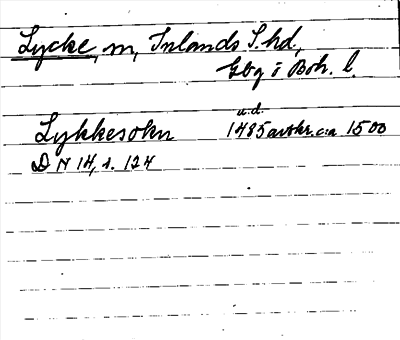 Lycke, m, Inlands S. hd,
Gbg o Boh. l.
u.d.
Lykkesokn 1485 avskr. c:a 1500
D N 14, s. 124